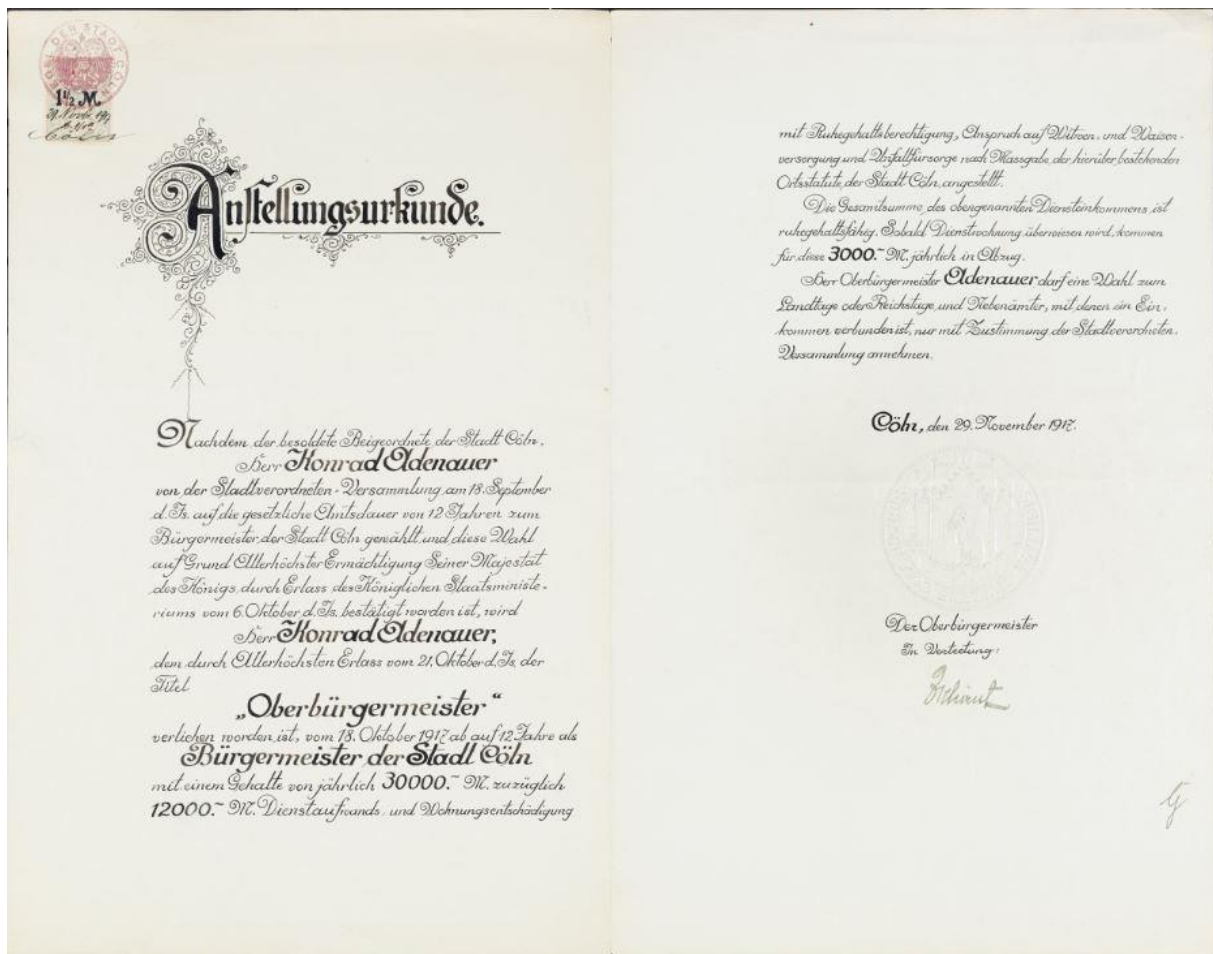 SIEGEL DER STADT CÖLN
1½ M.
29. Novb. 1917
Cöln
Anstellungsurkunde.
Nachdem der besoldete Beigeordnete der Stadt Cöln,
Herr Konrad Adenauer
von der Stadtverordneten-Versammlung am 18. September
d. Js. auf die gesetzliche Amtsdauer von 12 Jahren zum
Bürgermeister der Stadt Cöln gewählt und diese Wahl
auf Grund Allerhöchster Ermächtigung Seiner Majestät
des Königs durch Erlass des Königlichen Staatsministe-
riums vom 6. Oktober d. Js. bestätigt worden ist, wird
Herr Konrad Adenauer,
dem durch Allerhöchsten Erlass vom 21. Oktober d. Js. der
Titel
„Oberbürgermeister“
verliehen worden ist, vom 18. Oktober 1917 ab auf 12 Jahre als
Bürgermeister der Stadt Cöln
mit einem Gehalte von jährlich 30000.- M. zuzüglich
12000.- M. Dienstaufwands- und Wohnungsentschädigung
mit Ruhegehaltsberechtigung, Anspruch auf Witwen- und Waisen-
versorgung und Unfallfürsorge nach Massgabe der hierüber bestehenden
Ortsstatute der Stadt Cöln angestellt.
Die Gesamtsumme des obengenannten Diensteinkommens ist
ruhegehaltsfähig. Sobald Dienstwohnung überwiesen wird, kommen
für diese 3000.- M. jährlich in Abzug.
Herr Oberbürgermeister Adenauer darf eine Wahl zum
Landtage oder Reichstage und Nebenämter, mit denen ein Ein-
kommen verbunden ist, nur mit Zustimmung der Stadtverordneten-
Versammlung annehmen.
Cöln, den 29. November 1917.
Der Oberbürgermeister
In Vertretung: